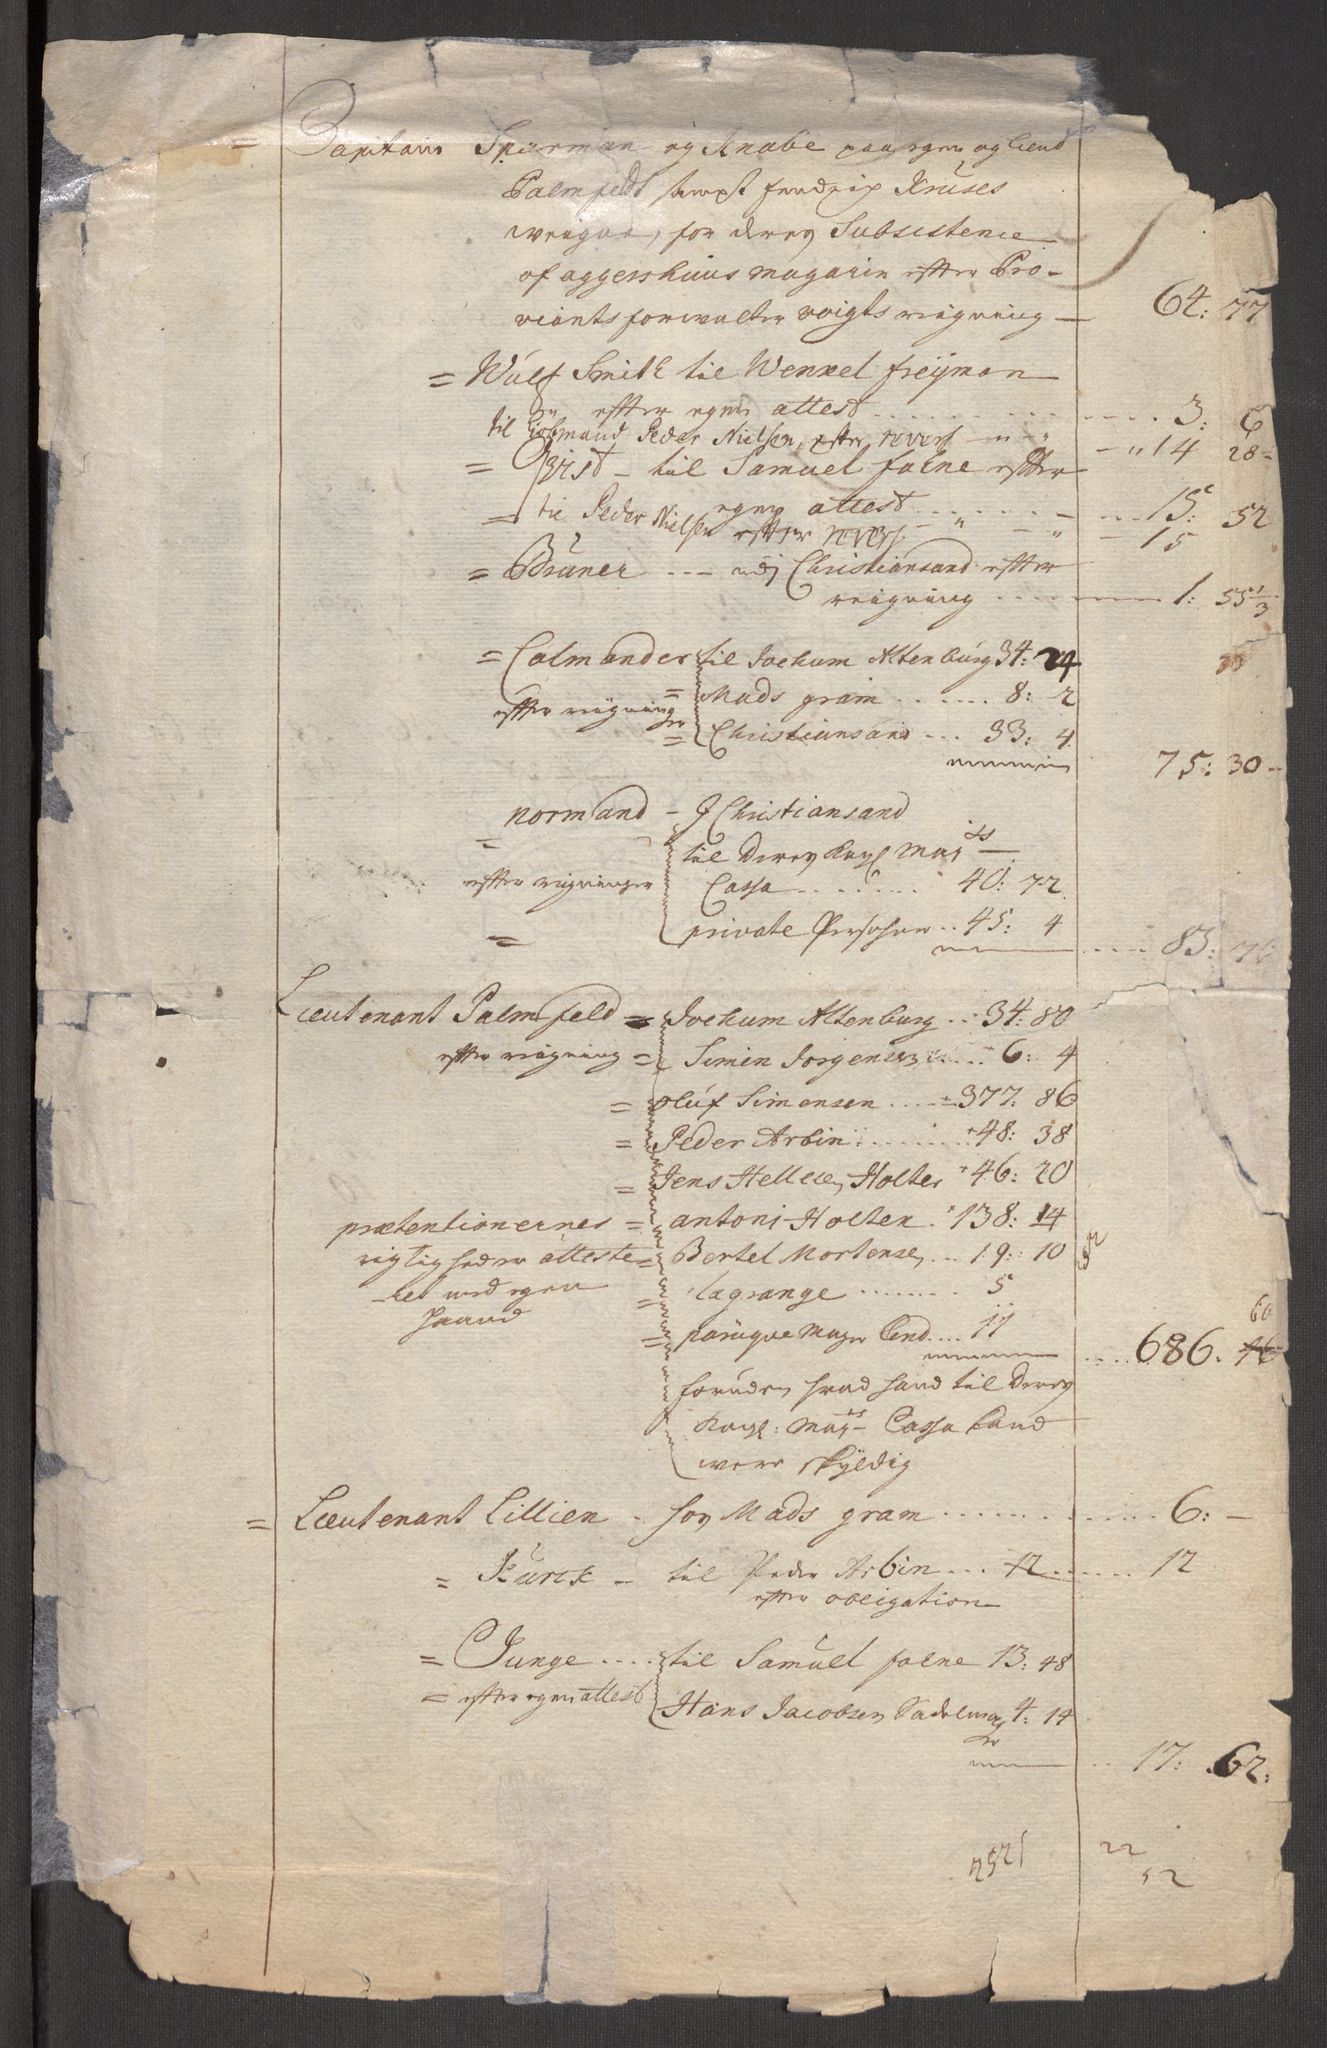 Capitain Spårman og Knabe paa egen og Lieut
Palmfeldt sampt fendrix Kruses
weigne, for deres Subsistence
af aggershuus magazin efter Pro-
viantsforwalter voigts reigning — 64: 77
= Wulf Smith til Wenxel freÿmon
efter egen attest ......... 3. 6
til Giestmand Peder Nielsen, efter revers — " 14 28
= Qvist - til Samuel faene efter
egen attest ... 15: 52
= til Peder Nielsen efter revers — " — 15
= Bruner --- udj Christiansand efter
reigning ------ 1: 55 1/3
= Calmander til Jochum Altenburg 34: 24
efter reigninger = Mads gram ....... 8: 2
= Christiansand ... 33: 4
75: 30
= normand - J Christiansand
til Deres Kongl Mays
efter reigninger Cassa ........ 40: 72
= private Persohner .. 45: 4
.... 83:
Lieutenant Palmfeld = Jochum Altenburg .. 34: 80
efter reigning = Simen Jorgensen ..... 6: 4
= oluf Simensen ..... 377: 86
= Peder Arbin ......... 48: 38
= Jens Hellesen Holter 46: 20
prætentionernes = antoni Holter . 138: 14
rigtighed er atteste = Bertel Mortensen ... 19: 10
-ret med egen = lagrange ........ 5
haand = paruque mager Lend .... 11
60
..... 686. 46
foruden hvad hand til Deres
Kongl: Mays Cassa kand
were skÿldig
= Lieutenant Lillien . hos Mads gram ............... 6: —
= Kurck - til Peder Arbin ... 12 ...... 12
efter obligation
= Junge .... til Samuel faene 13: 48
= efter egen attest Hans Jacobsen Sadelmager 4: 14
.. 17: 62:
2521 22
52